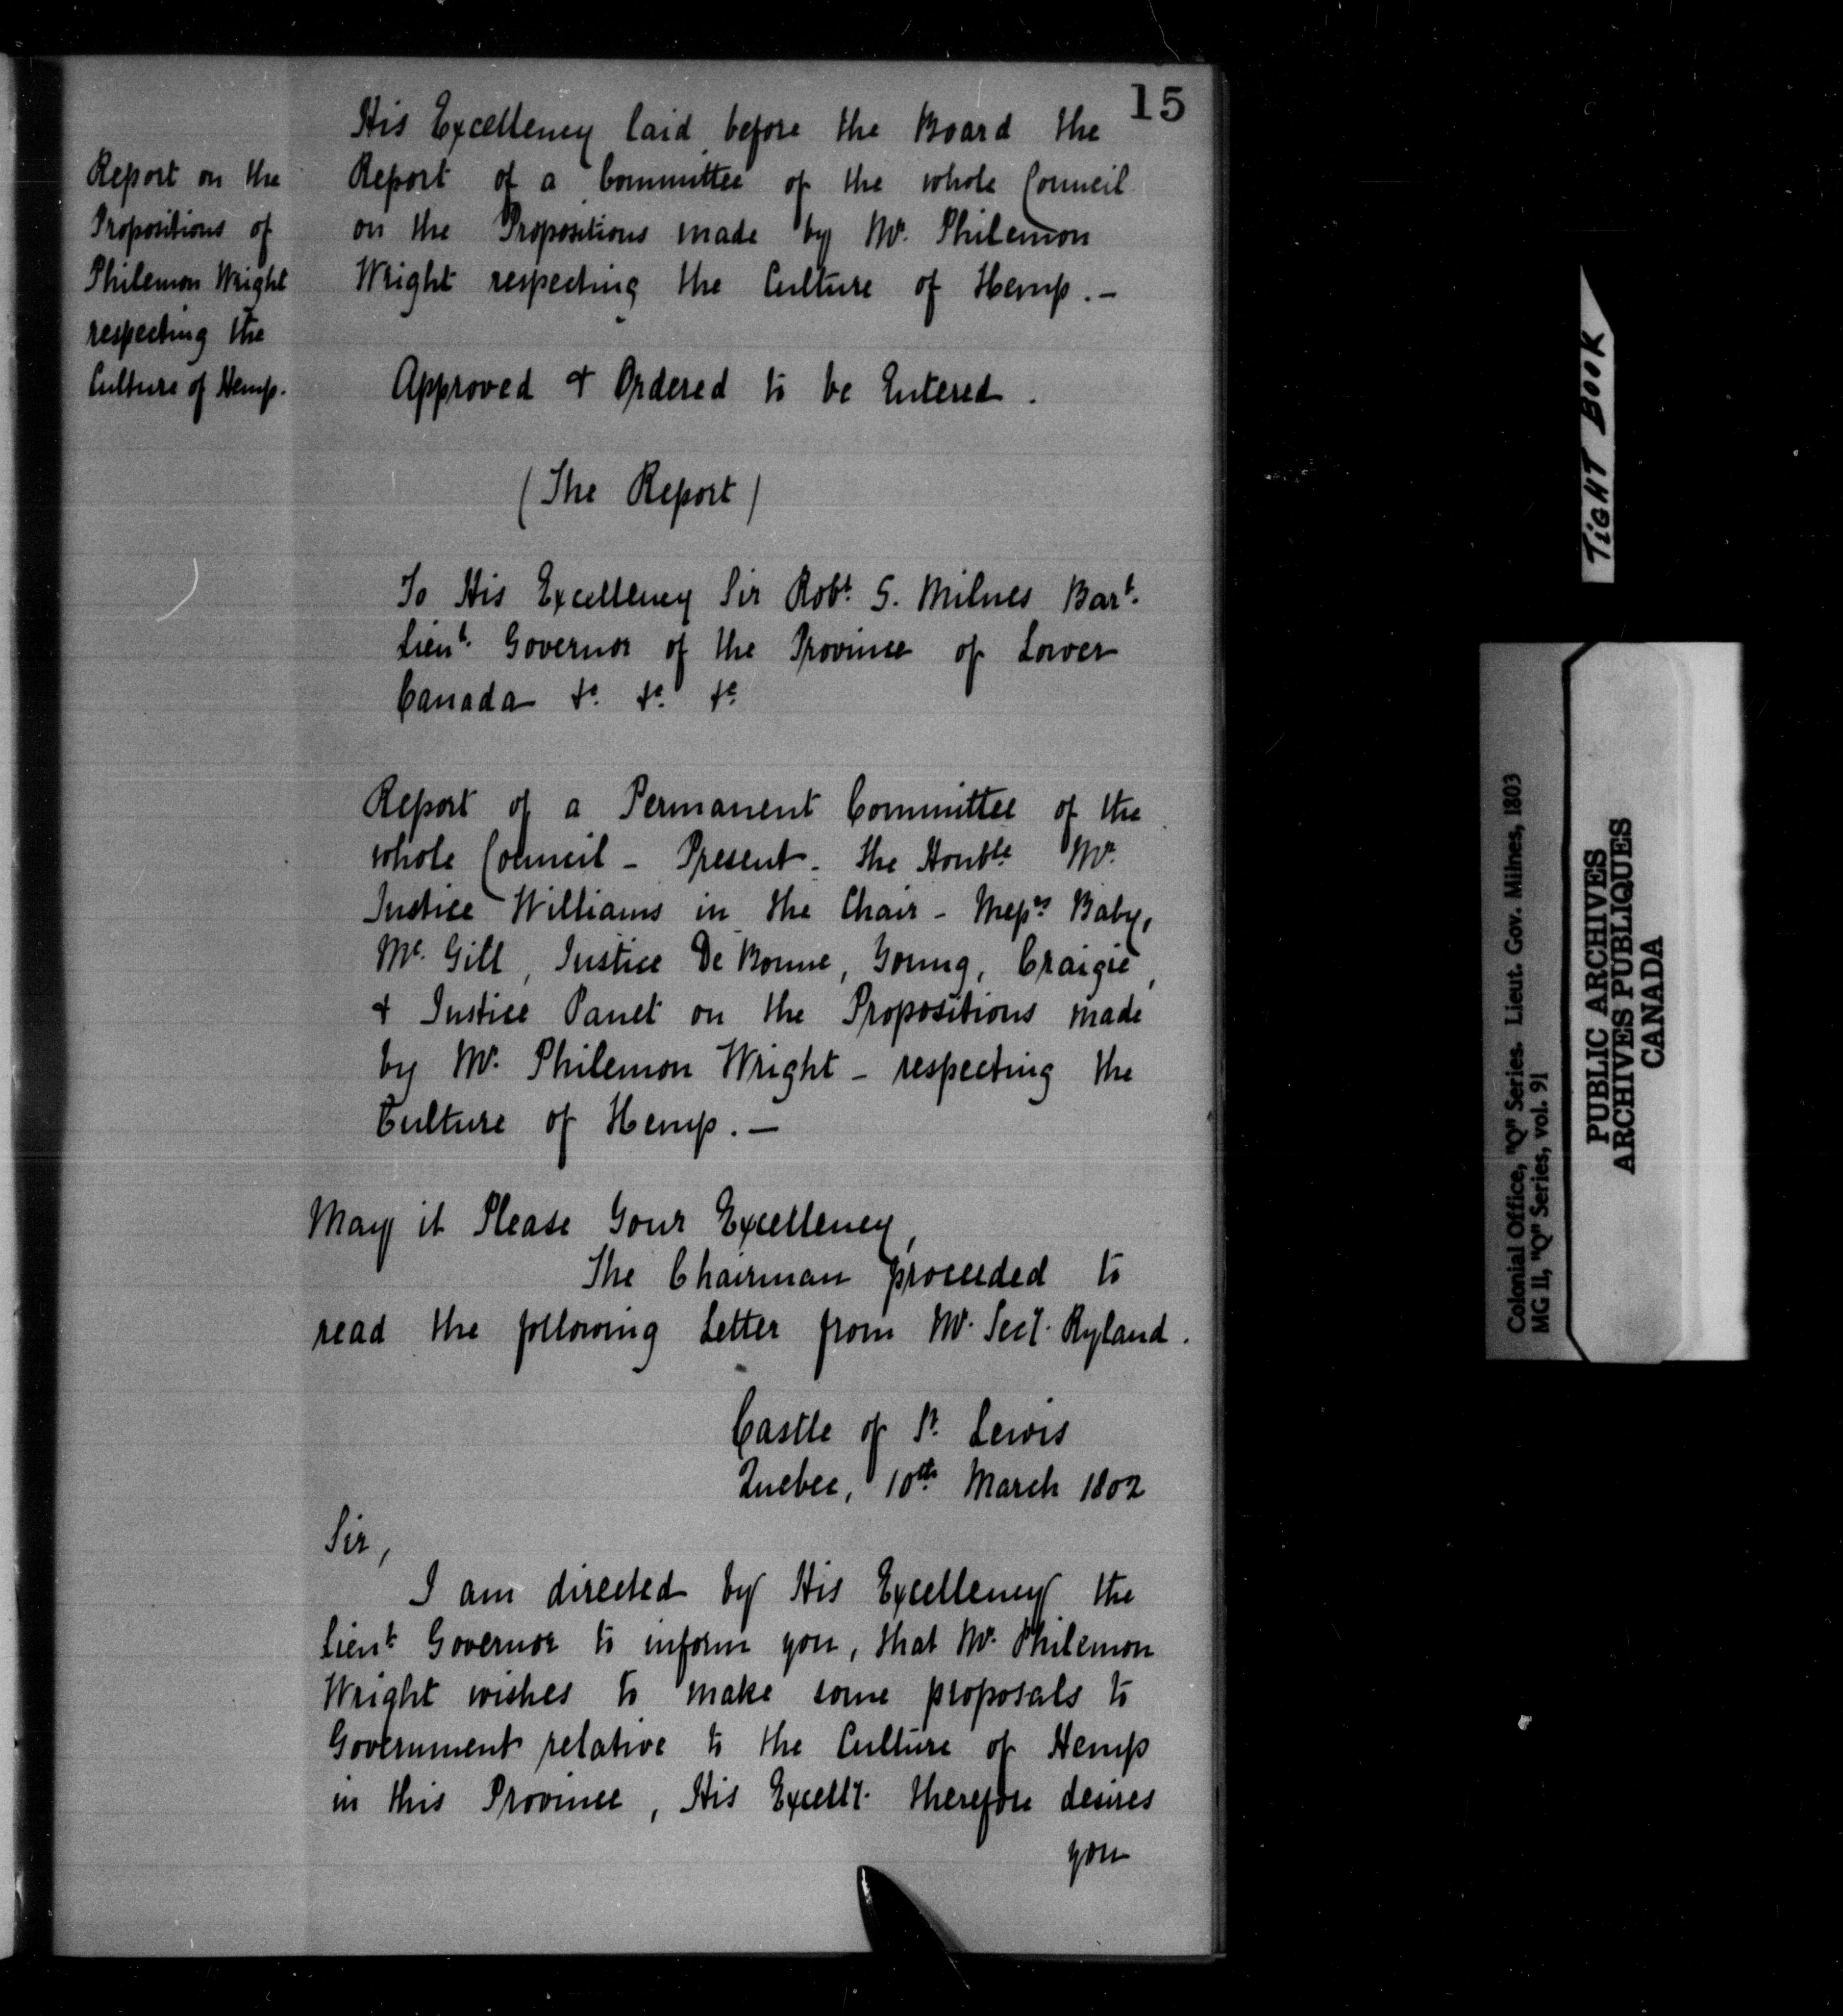 15
His Excellency laid before the Board the
Report of a Committee of the whole Council
on the Propositions made by Mr. Philemon
Wright respecting the Culture of Hemp.-
Report on the
Propositions of
Philemon Wright
respecting the
Culture of Hemp.
Approved & Ordered to be Entered.
(The Report)
To His Excellency Sir Robt. S. Milnes Bart.
Lieut. Governor of the Province of Lower
Canada &c. &c. &c.
Report of a Permanent Committee of the
whole Council - Present - The Honble Mr.
Justice Williams in the Chair - Messrs Baby,
Mc. Gill, Justice De Bonne, Young, Craigie,
& Justice Panet on the Propositions made
by Mr. Philemon Wright - respecting the
Culture of Hemp.-
May it Please Your Excellency,
The Chairman proceeded to
read the following Letter from Mr. Secy. Ryland.
Castle of St. Lewis
Quebec, 10th March 1802
Sir,
I am directed by His Excellency the
Lieut. Governor to inform you, that Mr. Philemon
Wright wishes to make some proposals to
Government relative to the Culture of Hemp
in this Province, His Excelly. therefore desires
you
TIGHT BOOK
Colonial Office, "Q" Series. Lieut. Gov. Milnes, 1803
MG 11, "Q" Series, vol. 91
PUBLIC ARCHIVES
ARCHIVES PUBLIQUES
CANADA